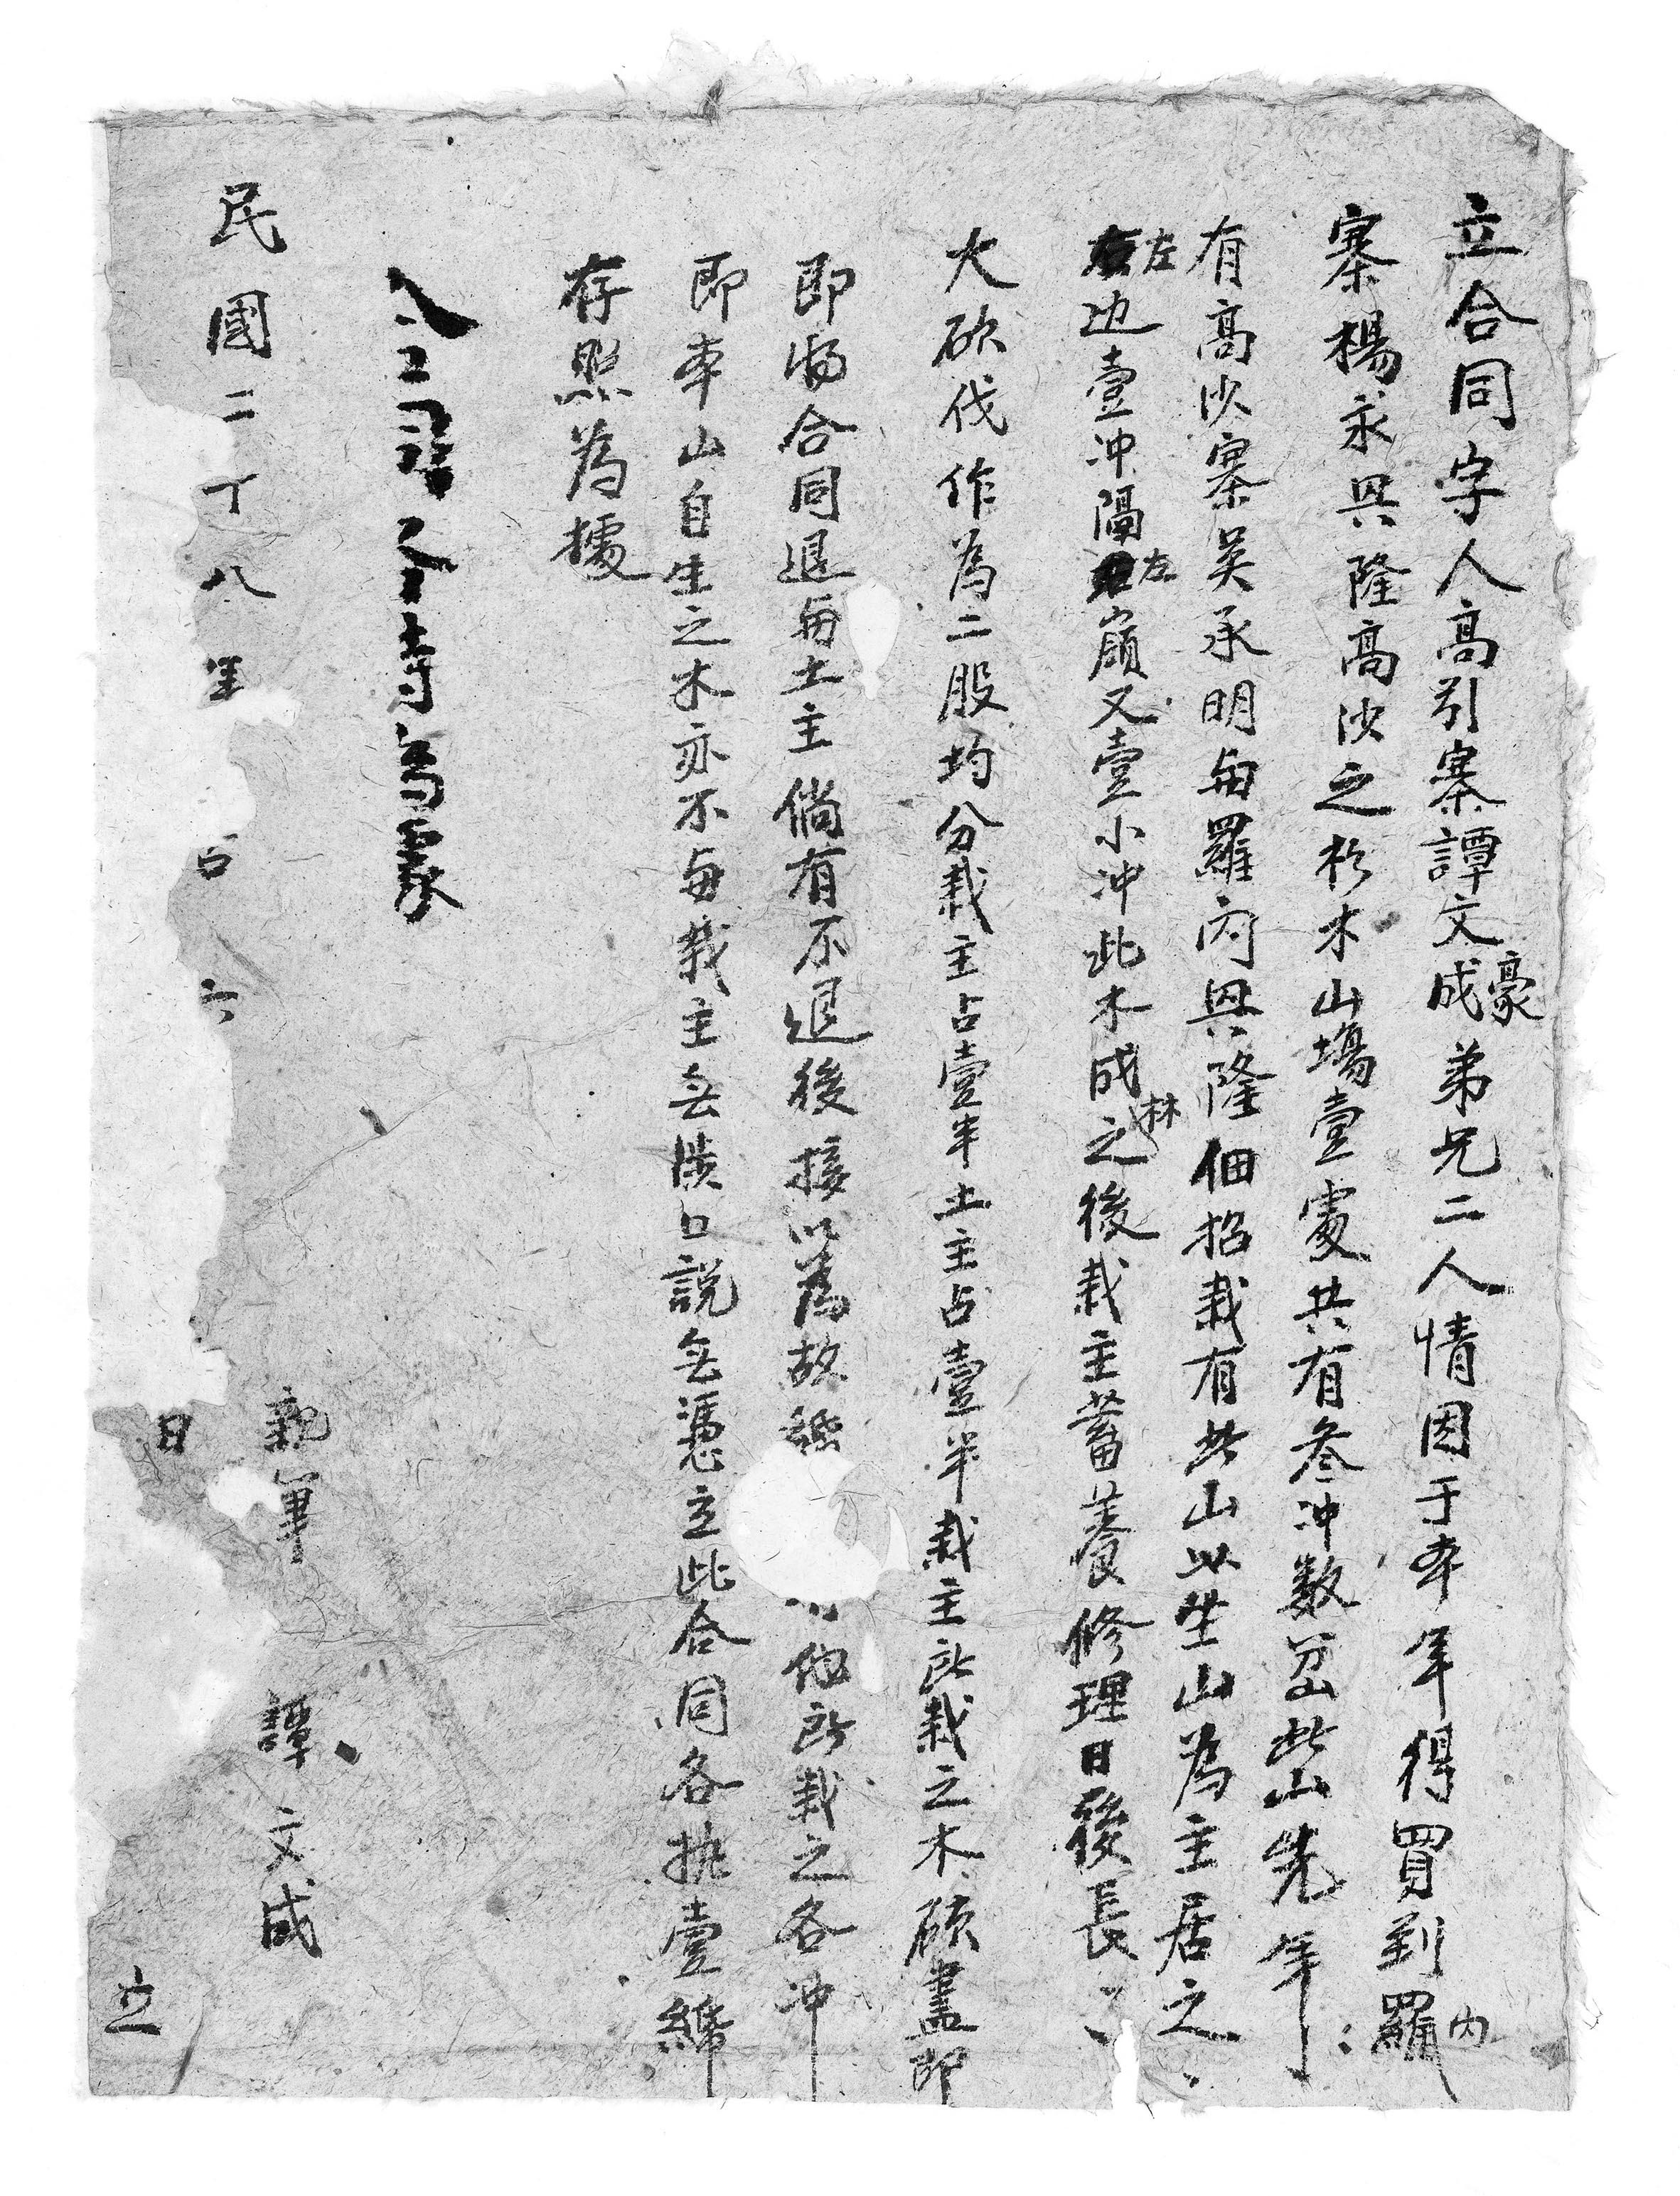 立合同字人高引寨譚文成豪弟兄二人情因于本年得買到羅内
寨楊永兴隆高沙之杉木山塲壹處共有叁冲数岔此山先年
有高沙寨吴承明與羅内兴隆佃招栽有此山以坐山為主居之
左边壹冲隔左嶺又壹小冲此木成林之後栽主蓄養修理日後長
大砍伐作為二股均分栽主占壹半土主占壹半栽主所栽之木砍盡即
即將合同退與土主倘有不退後接以為故紙他所栽之各冲
即本山自生之木亦不與栽主無涉口説無憑立此合同各执壹紙
存照為據
親筆 譚文成
民國二丁八年 占 六 日 立